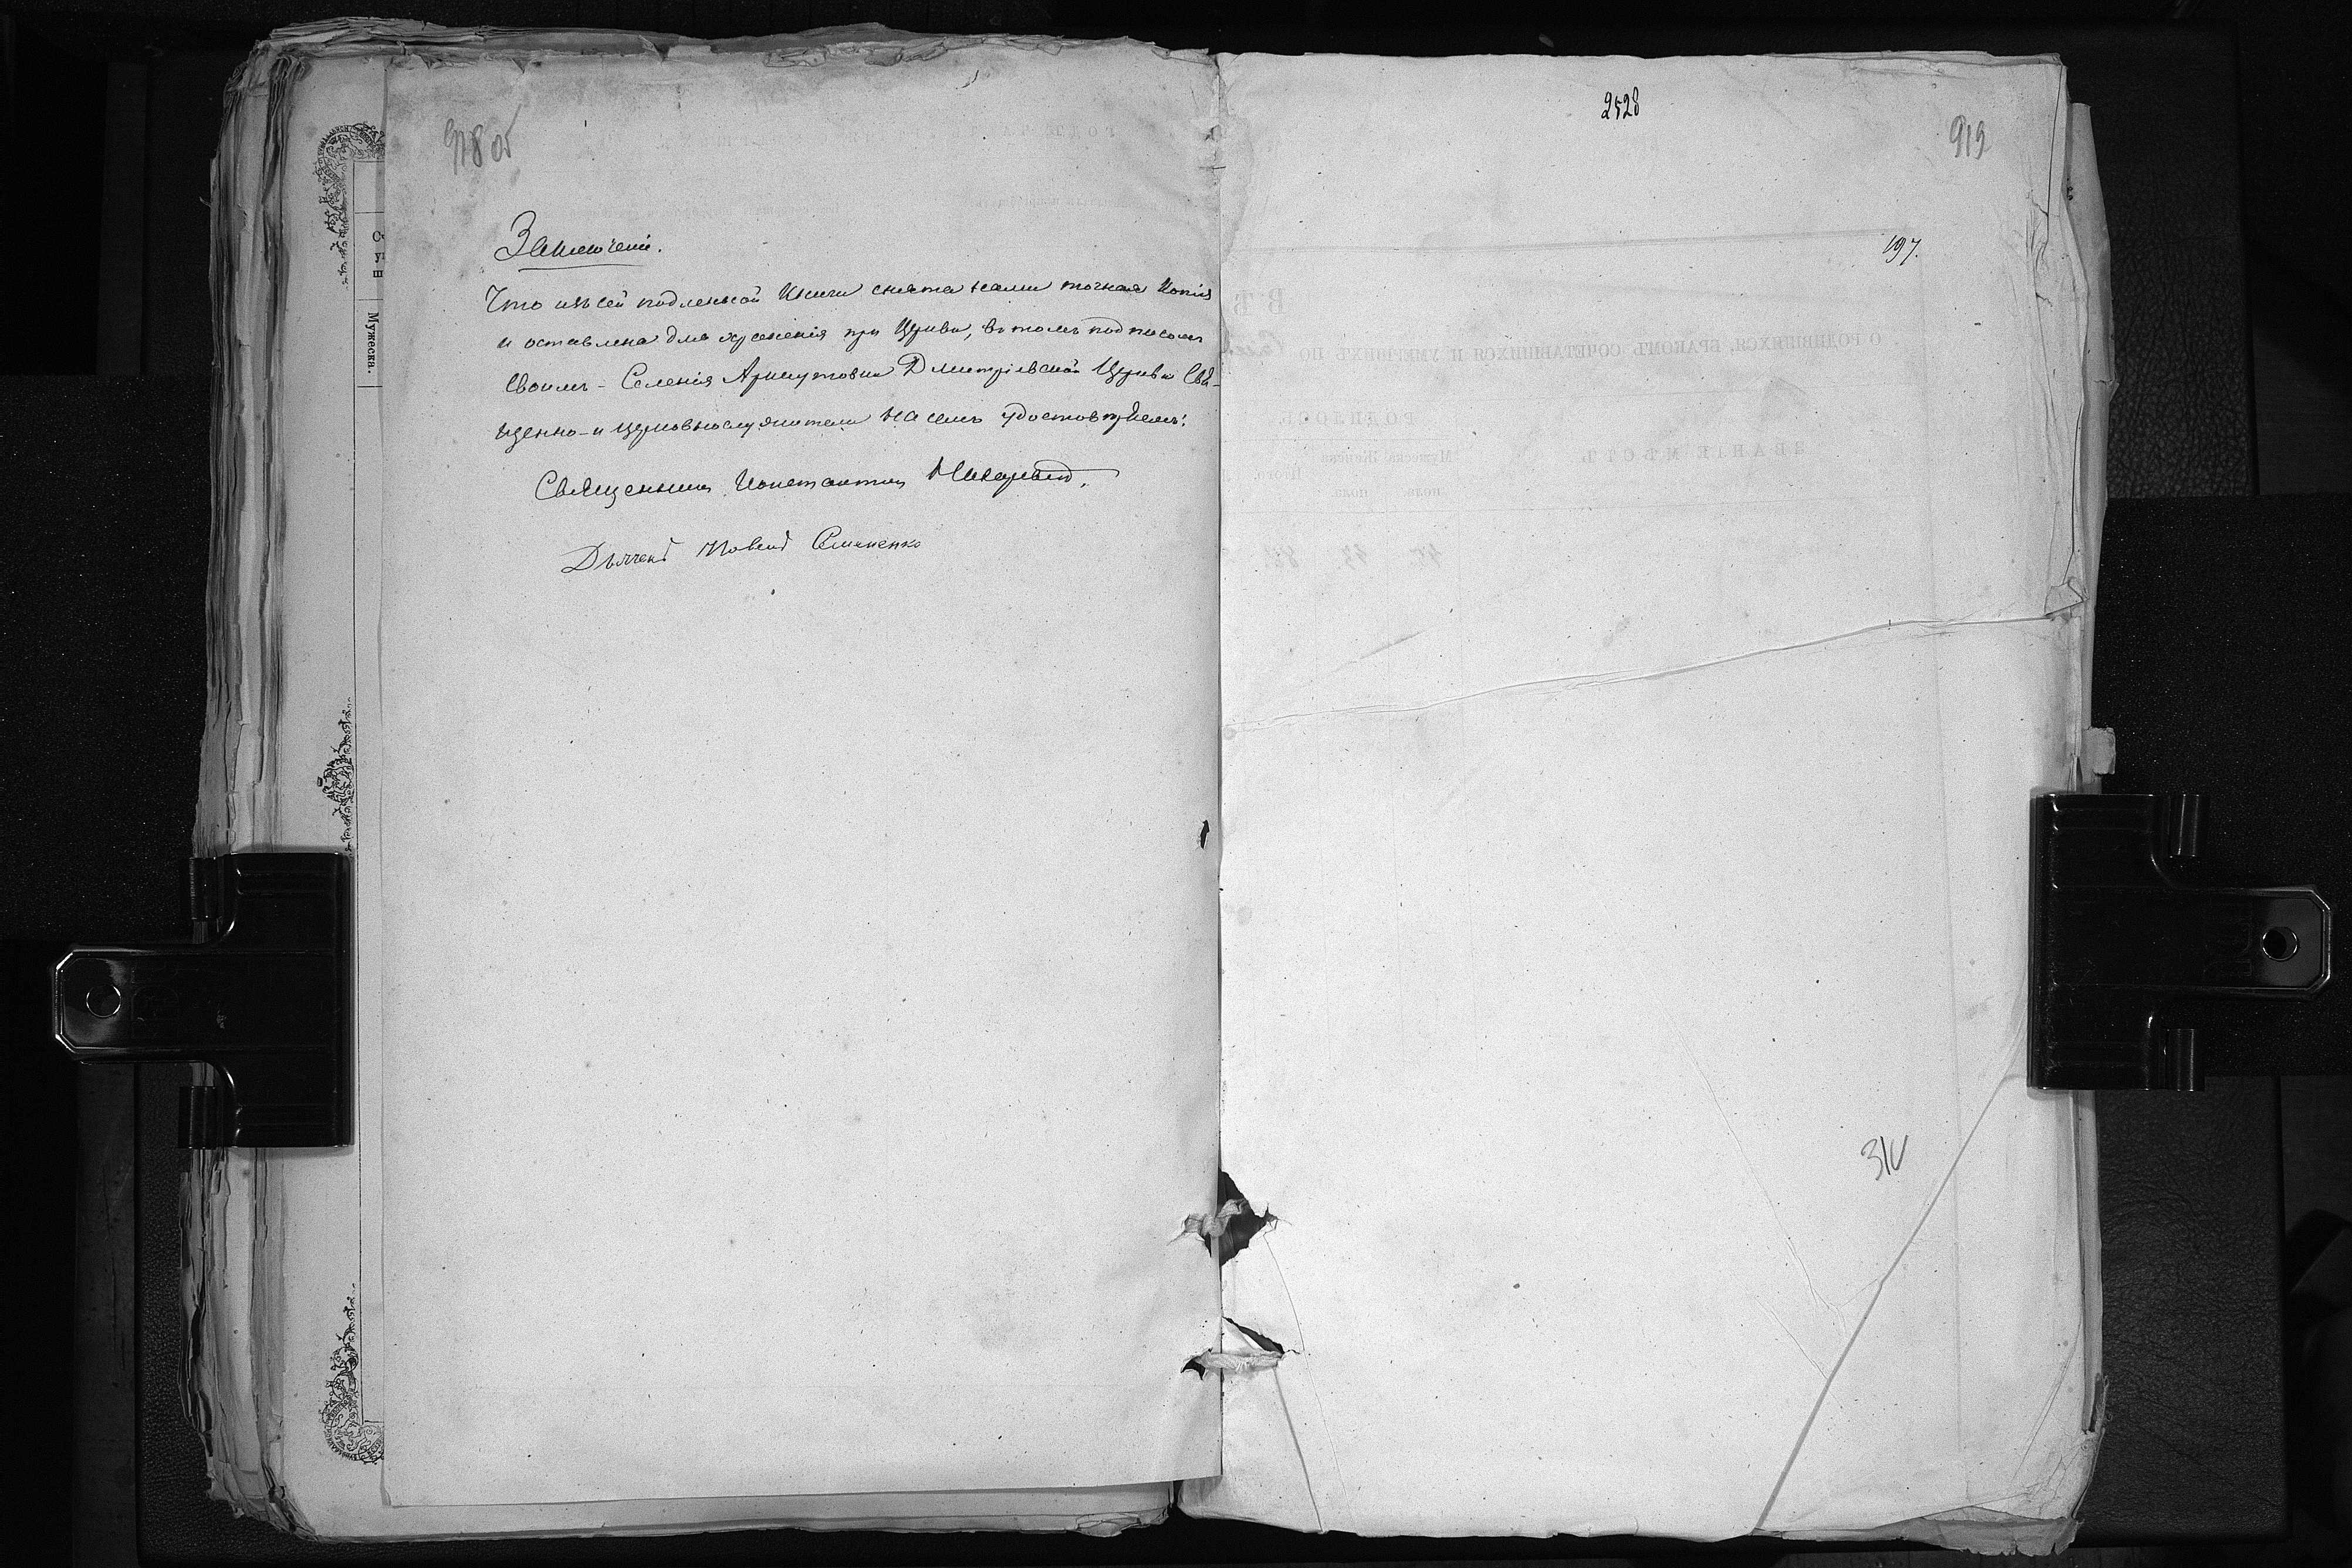 918 об
Заключеніе.
Что изъ сей подленной Книги снята нами точная Копія
и оставлена для храненія при Церкви, въ томъ подписомъ
Своимъ - Селенія Армутовки Дмитріевской Церкви Свя-
щенно-и Церковнослужители на семъ удостовѣряемъ:
Священникъ Константинъ
Дьячекъ Павелъ Семененко
Мужеска.
2528
919
197.
ВЪ
О РОДИВШИХСЯ, БРАКОМЪ СОЧЕТАВШИХСЯ И УМЕРШИХЪ ПО
РОДИЛОСЬ
ЗВАНІЕ МѢСТЪ
Мужеска Женска
пола. пола.